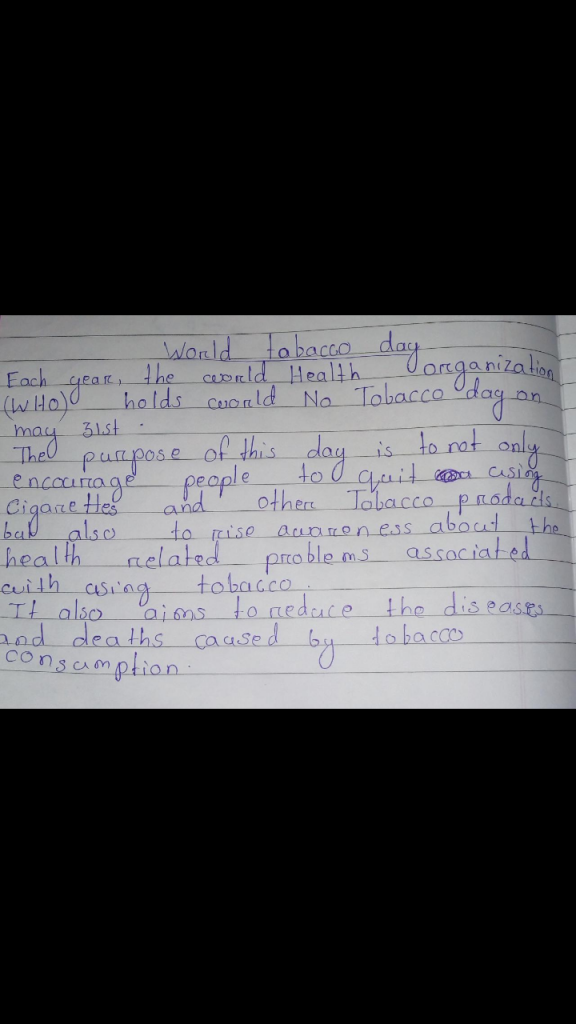 World tabacco day
Each year, the world Health organization
(WHO) holds world No Tobacco day on
may 31st.
The purpose of this day is to not only
encourage people to quit using
Cigarettes and other Tobacco products.
but also to rise awareness about the
health related problems associated
with using tobacco.
It also aims to reduce the diseases
and deaths caused by tobacco
consumption.